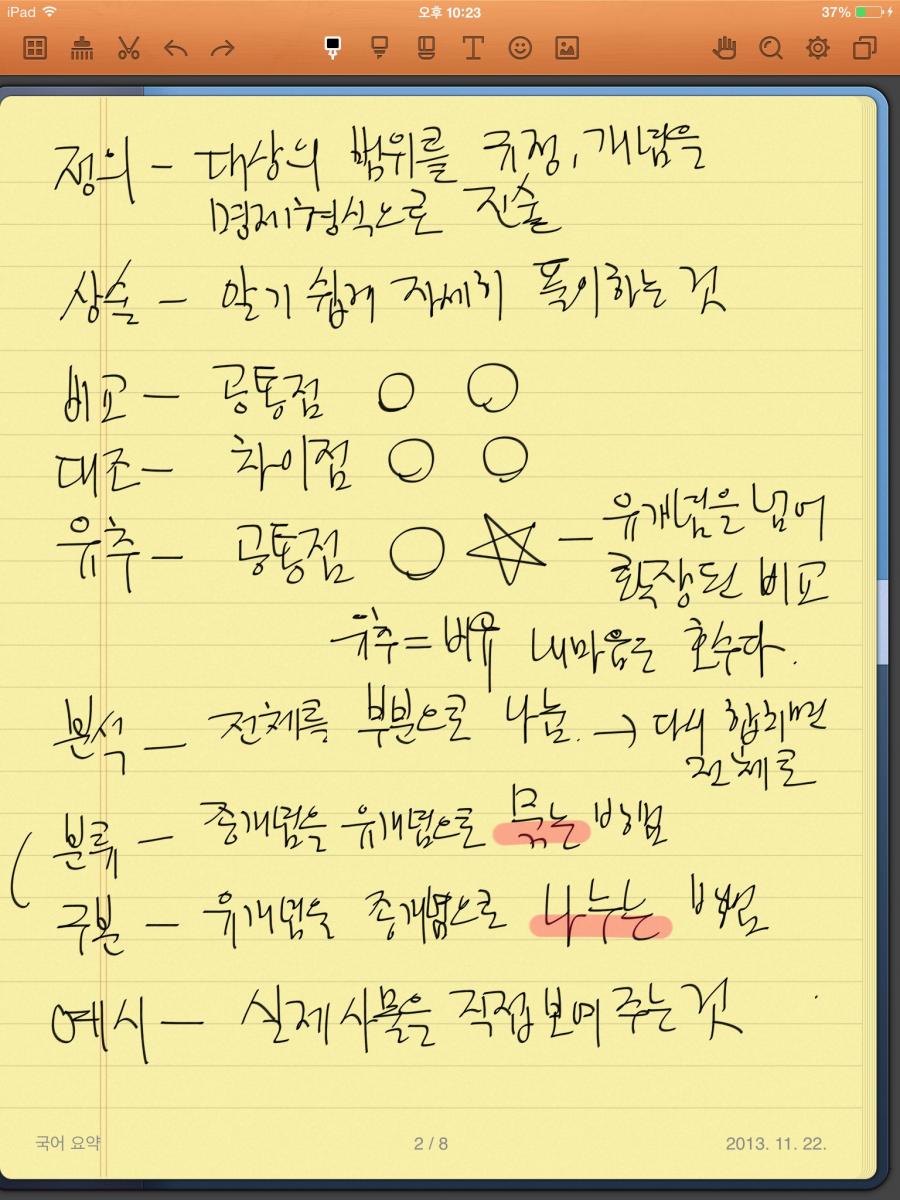 iPad 오후 10:23 37%
정의 - 대상의 범위를 규정, 개념을
명제형식으로 진술
상술 - 알기 쉽게 자세히 풀이하는 것
비교 - 공통점 ○ ○
대조 - 차이점 ○ ○
유추 - 공통점 ○ ☆ - 유개념을 넘어
확장된 비교
유추 = 비유 내마음은 호수다.
분석 - 전체를 부분으로 나눔. → 다시 합치면
전체로
분류 - 종개념을 유개념으로 묶는 방법
구분 - 유개념을 종개념으로 나누는 방법
예시 - 실제 사물을 직접 보여 주는 것
국어 요약 2 / 8 2013. 11. 22.